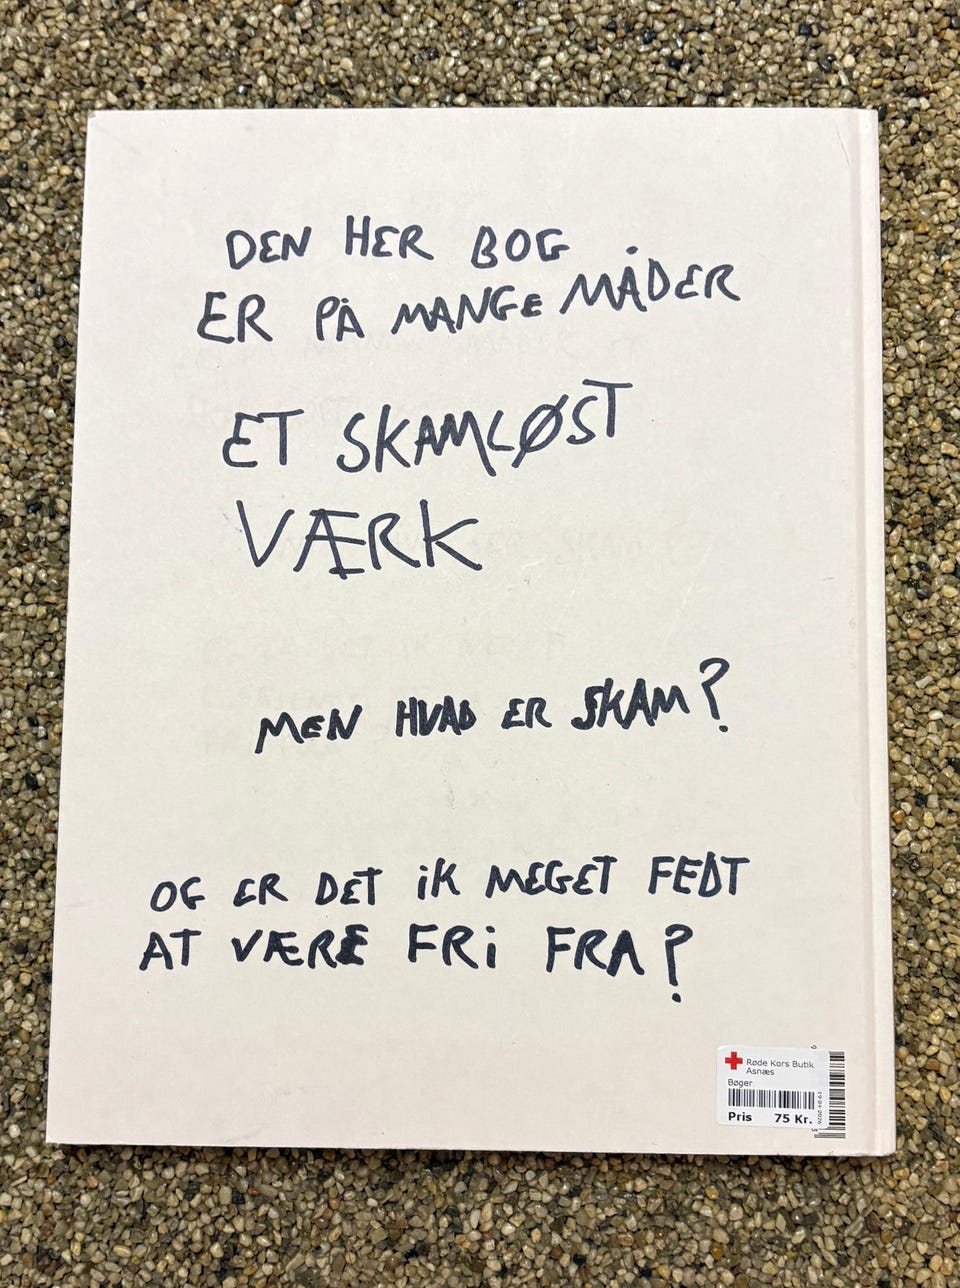 DEN HER BOG
ER PÅ MANGE MÅDER
ET SKAMLØST
VÆRK
MEN HVAD ER SKAM?
OG ER DET iK MEGET FEDT
AT VÆRE FRi FRA?
Røde Kors Butik
Asnæs
Bøger
Pris 75 Kr.
19-04-2026